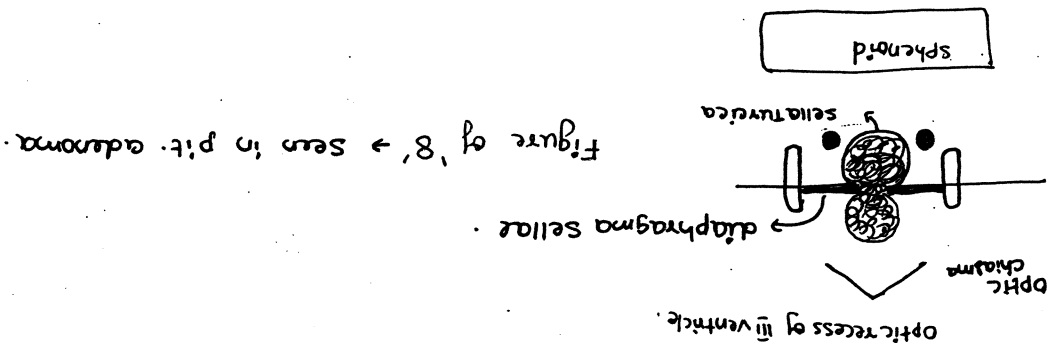 optic recess of III ventricle.
optic
chiasma
diaphragma sellae.
Figure of '8' → seen in pit. adenoma.
sella turcica
sphenoid